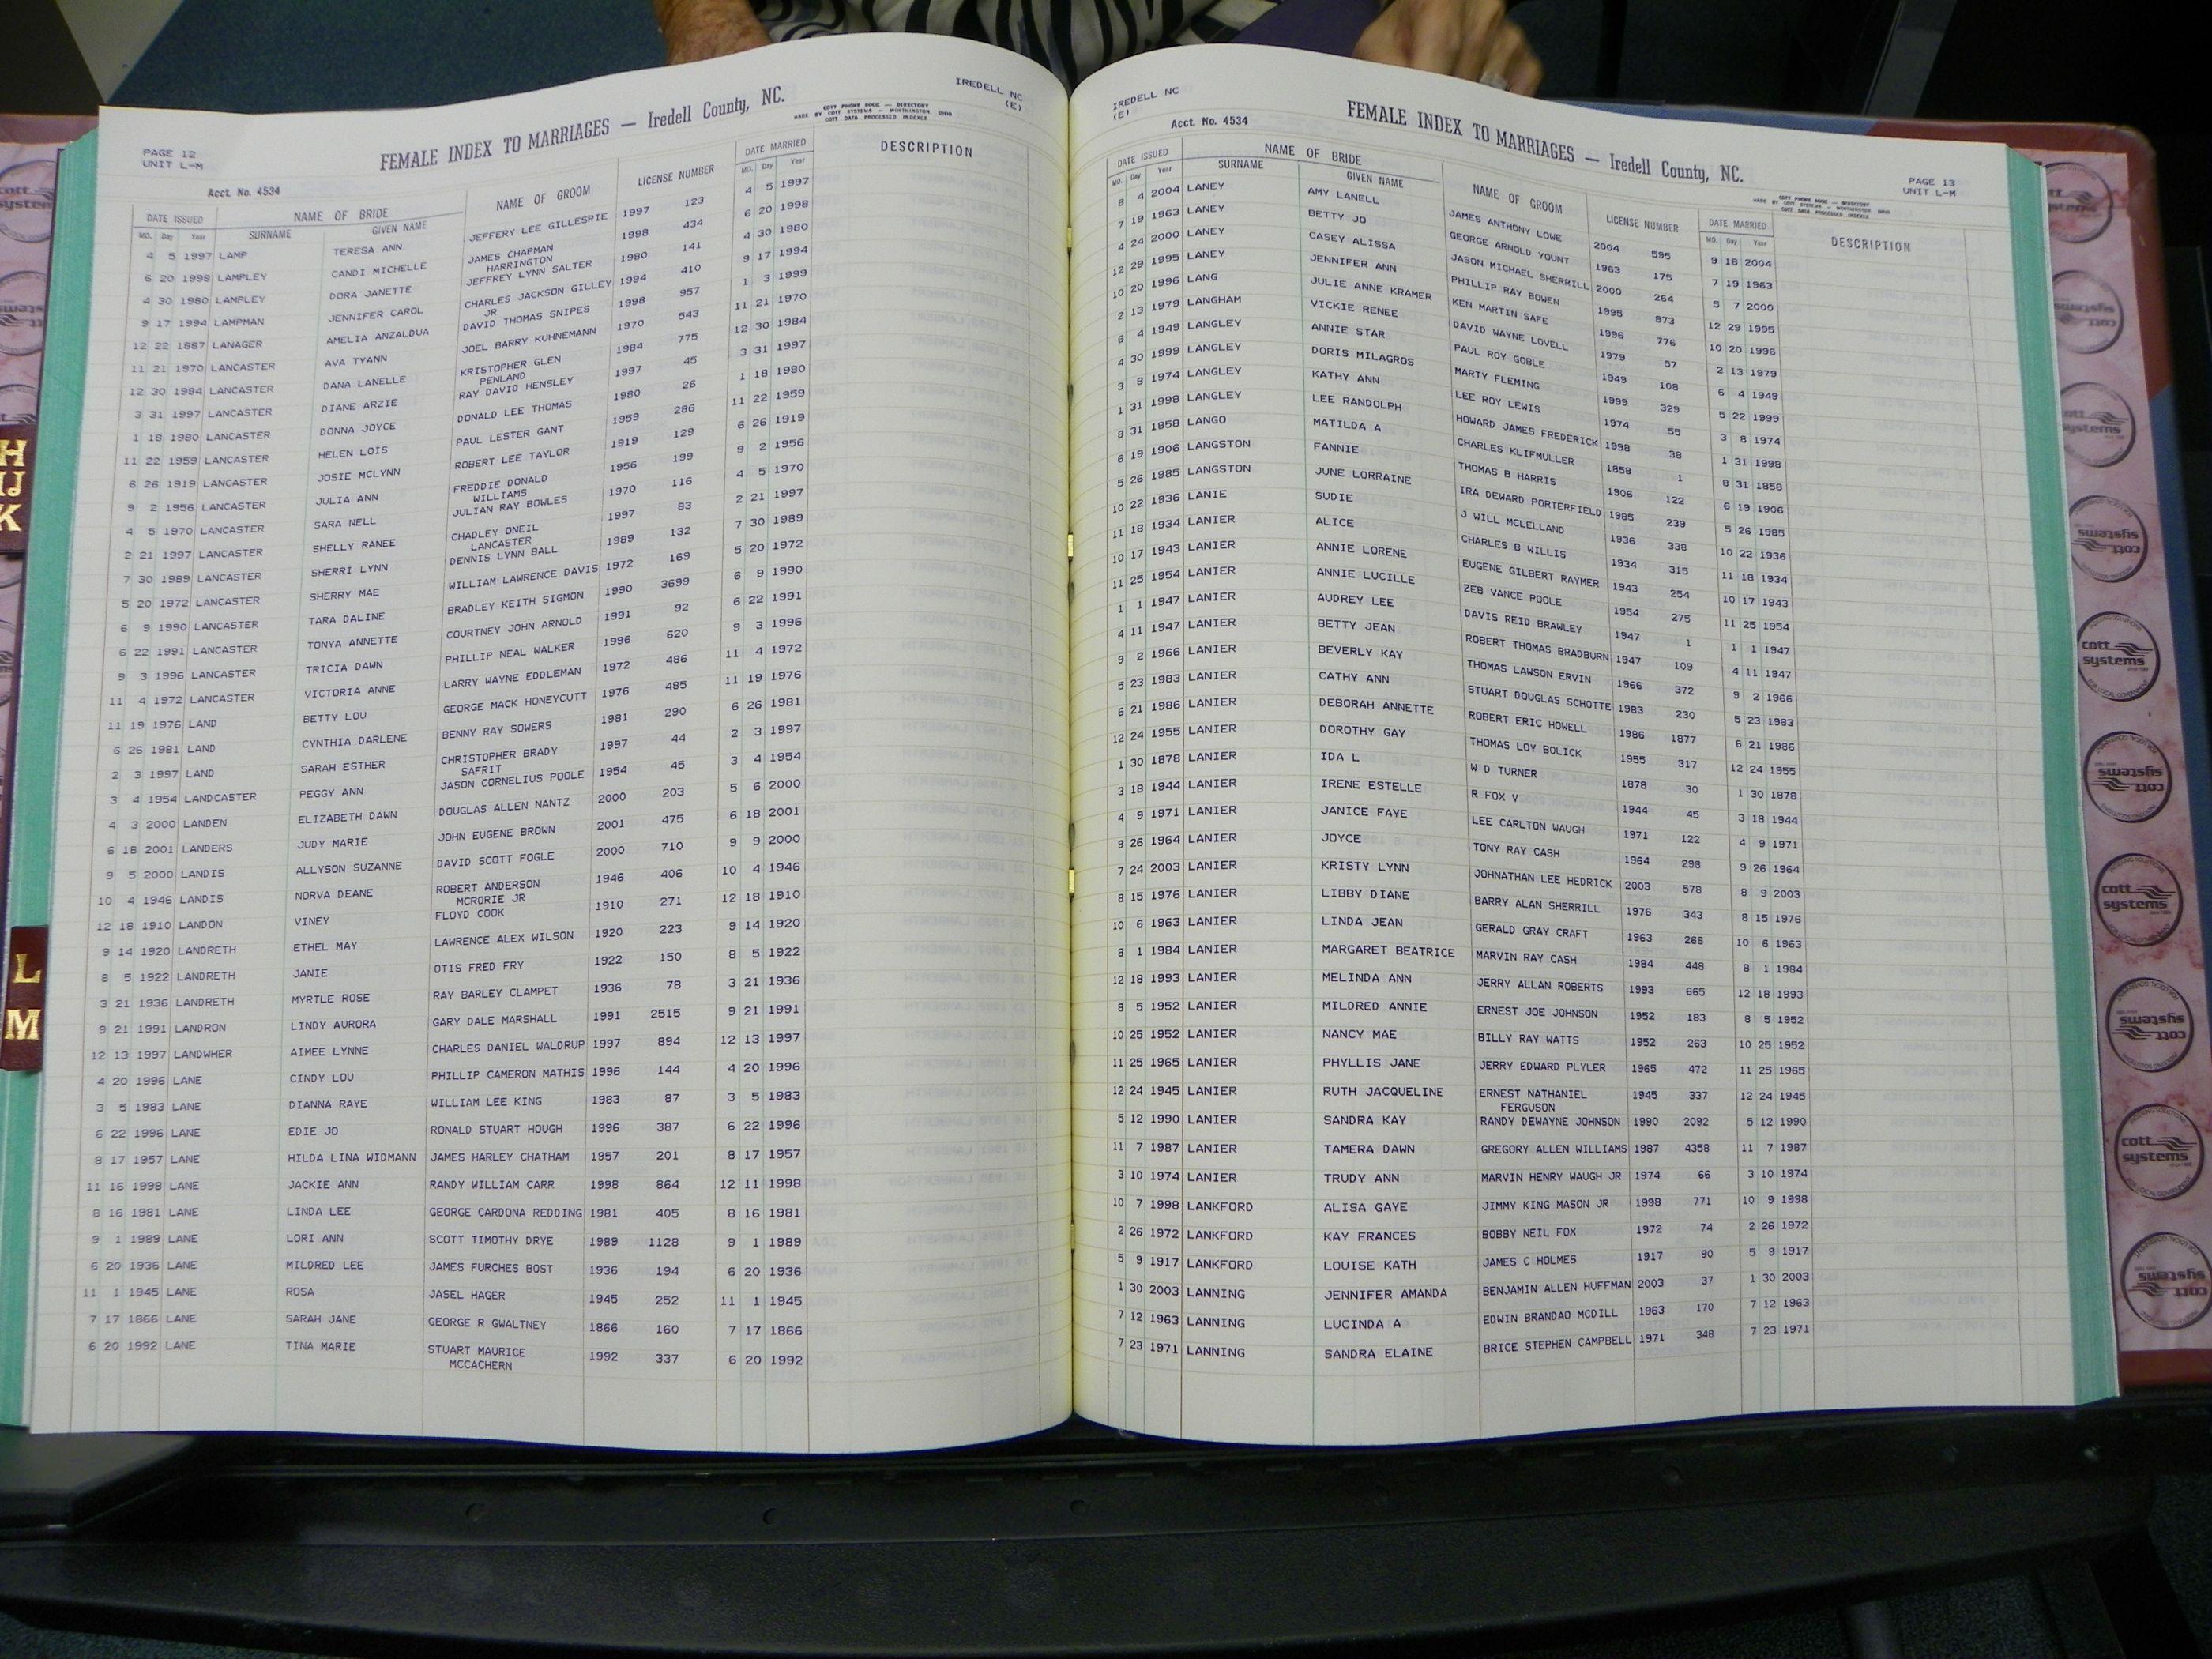 PAGE 12
UNIT L-M
FEMALE INDEX TO MARRIAGES — Iredell County, NC.
IREDELL NC
(E)
MADE BY COTT SYSTEMS — WORTHINGTON OHIO
COTT DATA PROCESSED INDEXES
Acct. No. 4534
DATE ISSUED NAME OF BRIDE NAME OF GROOM LICENSE NUMBER DATE MARRIED DESCRIPTION
MO. Day Year SURNAME GIVEN NAME MO. Day Year
4 5 1997 LAMP TERESA ANN JEFFERY LEE GILLESPIE 1997 123 4 5 1997
6 20 1998 LAMPLEY CANDI MICHELLE JAMES CHAPMAN 1998 434 6 20 1998
HARRINGTON
4 30 1980 LAMPLEY DORA JANETTE JEFFREY LYNN SALTER 1980 141 4 30 1980
9 17 1994 LAMPMAN JENNIFER CAROL CHARLES JACKSON GILLEY 1994 410 9 17 1994
JR
12 22 1887 LANAGER AMELIA ANZALDUA DAVID THOMAS SNIPES 1998 957 1 3 1999
11 21 1970 LANCASTER AVA TYANN JOEL BARRY KUHNEMANN 1970 543 11 21 1970
12 30 1984 LANCASTER DANA LANELLE KRISTOPHER GLEN 1984 775 12 30 1984
PENLAND
3 31 1997 LANCASTER DIANE ARZIE RAY DAVID HENSLEY 1997 45 3 31 1997
1 18 1980 LANCASTER DONNA JOYCE DONALD LEE THOMAS 1980 26 1 18 1980
11 22 1959 LANCASTER HELEN LOIS PAUL LESTER GANT 1959 286 11 22 1959
6 26 1919 LANCASTER JOSIE MCLYNN ROBERT LEE TAYLOR 1919 129 6 26 1919
9 2 1956 LANCASTER JULIA ANN FREDDIE DONALD 1956 199 9 2 1956
WILLIAMS
4 5 1970 LANCASTER SARA NELL JULIAN RAY BOWLES 1970 116 4 5 1970
2 21 1997 LANCASTER SHELLY RANEE CHADLEY ONEIL 1997 83 2 21 1997
LANCASTER
7 30 1989 LANCASTER SHERRI LYNN DENNIS LYNN BALL 1989 132 7 30 1989
5 20 1972 LANCASTER SHERRY MAE WILLIAM LAWRENCE DAVIS 1972 169 5 20 1972
6 9 1990 LANCASTER TARA DALINE BRADLEY KEITH SIGMON 1990 3699 6 9 1990
6 22 1991 LANCASTER TONYA ANNETTE COURTNEY JOHN ARNOLD 1991 92 6 22 1991
9 3 1996 LANCASTER TRICIA DAWN PHILLIP NEAL WALKER 1996 620 9 3 1996
11 4 1972 LANCASTER VICTORIA ANNE LARRY WAYNE EDDLEMAN 1972 486 11 4 1972
11 19 1976 LAND BETTY LOU GEORGE MACK HONEYCUTT 1976 485 11 19 1976
6 26 1981 LAND CYNTHIA DARLENE BENNY RAY SOWERS 1981 290 6 26 1981
2 3 1997 LAND SARAH ESTHER CHRISTOPHER BRADY 1997 44 2 3 1997
SAFRIT
3 4 1954 LANDCASTER PEGGY ANN JASON CORNELIUS POOLE 1954 45 3 4 1954
4 3 2000 LANDEN ELIZABETH DAWN DOUGLAS ALLEN NANTZ 2000 203 5 6 2000
6 18 2001 LANDERS JUDY MARIE JOHN EUGENE BROWN 2001 475 6 18 2001
9 5 2000 LANDIS ALLYSON SUZANNE DAVID SCOTT FOGLE 2000 710 9 9 2000
10 4 1946 LANDIS NORVA DEANE ROBERT ANDERSON 1946 406 10 4 1946
MCRORIE JR
12 18 1910 LANDON VINEY FLOYD COOK 1910 271 12 18 1910
9 14 1920 LANDRETH ETHEL MAY LAWRENCE ALEX WILSON 1920 223 9 14 1920
8 5 1922 LANDRETH JANIE OTIS FRED FRY 1922 150 8 5 1922
3 21 1936 LANDRETH MYRTLE ROSE RAY BARLEY CLAMPET 1936 78 3 21 1936
9 21 1991 LANDRON LINDY AURORA GARY DALE MARSHALL 1991 2515 9 21 1991
12 13 1997 LANDWHER AIMEE LYNNE CHARLES DANIEL WALDRUP 1997 894 12 13 1997
4 20 1996 LANE CINDY LOU PHILLIP CAMERON MATHIS 1996 144 4 20 1996
3 5 1983 LANE DIANNA RAYE WILLIAM LEE KING 1983 87 3 5 1983
6 22 1996 LANE EDIE JO RONALD STUART HOUGH 1996 387 6 22 1996
8 17 1957 LANE HILDA LINA WIDMANN JAMES HARLEY CHATHAM 1957 201 8 17 1957
11 16 1998 LANE JACKIE ANN RANDY WILLIAM CARR 1998 864 12 11 1998
8 16 1981 LANE LINDA LEE GEORGE CARDONA REDDING 1981 405 8 16 1981
9 1 1989 LANE LORI ANN SCOTT TIMOTHY DRYE 1989 1128 9 1 1989
6 20 1936 LANE MILDRED LEE JAMES FURCHES BOST 1936 194 6 20 1936
11 1 1945 LANE ROSA JASEL HAGER 1945 252 11 1 1945
7 17 1866 LANE SARAH JANE GEORGE R GWALTNEY 1866 160 7 17 1866
6 20 1992 LANE TINA MARIE STUART MAURICE 1992 337 6 20 1992
MCCACHERN
IREDELL NC
(E)
Acct. No. 4534
FEMALE INDEX TO MARRIAGES — Iredell County, NC.
PAGE 13
UNIT L-M
DATE ISSUED NAME OF BRIDE NAME OF GROOM LICENSE NUMBER DATE MARRIED DESCRIPTION
MO. Day Year SURNAME GIVEN NAME MO. Day Year
8 4 2004 LANEY AMY LANELL JAMES ANTHONY LOWE 2004 595 9 18 2004
7 19 1963 LANEY BETTY JO GEORGE ARNOLD YOUNT 1963 175 7 19 1963
4 24 2000 LANEY CASEY ALISSA JASON MICHAEL SHERRILL 2000 264 5 7 2000
12 29 1995 LANEY JENNIFER ANN PHILLIP RAY BOWEN 1995 873 12 29 1995
10 20 1996 LANG JULIE ANNE KRAMER KEN MARTIN SAFE 1996 776 10 20 1996
2 13 1979 LANGHAM VICKIE RENEE DAVID WAYNE LOVELL 1979 57 2 13 1979
6 4 1949 LANGLEY ANNIE STAR PAUL ROY GOBLE 1949 108 6 4 1949
4 30 1999 LANGLEY DORIS MILAGROS MARTY FLEMING 1999 329 5 22 1999
3 8 1974 LANGLEY KATHY ANN LEE ROY LEWIS 1974 55 3 8 1974
1 31 1998 LANGLEY LEE RANDOLPH HOWARD JAMES FREDERICK 1998 38 1 31 1998
8 31 1858 LANGO MATILDA A CHARLES KLIFMULLER 1858 1 8 31 1858
6 19 1906 LANGSTON FANNIE THOMAS B HARRIS 1906 122 6 19 1906
5 26 1985 LANGSTON JUNE LORRAINE IRA DEWARD PORTERFIELD 1985 239 5 26 1985
10 22 1936 LANIE SUDIE J WILL MCLELLAND 1936 338 10 22 1936
11 18 1934 LANIER ALICE CHARLES B WILLIS 1934 315 11 18 1934
10 17 1943 LANIER ANNIE LORENE EUGENE GILBERT RAYMER 1943 254 10 17 1943
11 25 1954 LANIER ANNIE LUCILLE ZEB VANCE POOLE 1954 275 11 25 1954
1 1 1947 LANIER AUDREY LEE DAVIS REID BRAWLEY 1947 1 1 1 1947
4 11 1947 LANIER BETTY JEAN ROBERT THOMAS BRADBURN 1947 109 4 11 1947
9 2 1966 LANIER BEVERLY KAY THOMAS LAWSON ERVIN 1966 372 9 2 1966
5 23 1983 LANIER CATHY ANN STUART DOUGLAS SCHOTTE 1983 230 5 23 1983
6 21 1986 LANIER DEBORAH ANNETTE ROBERT ERIC HOWELL 1986 1877 6 21 1986
12 24 1955 LANIER DOROTHY GAY THOMAS LOY BOLICK 1955 317 12 24 1955
1 30 1878 LANIER IDA L W D TURNER 1878 30 1 30 1878
3 18 1944 LANIER IRENE ESTELLE R FOX V 1944 45 3 18 1944
4 9 1971 LANIER JANICE FAYE LEE CARLTON WAUGH 1971 122 4 9 1971
9 26 1964 LANIER JOYCE TONY RAY CASH 1964 298 9 26 1964
7 24 2003 LANIER KRISTY LYNN JOHNATHAN LEE HEDRICK 2003 578 8 9 2003
8 15 1976 LANIER LIBBY DIANE BARRY ALAN SHERRILL 1976 343 8 15 1976
10 6 1963 LANIER LINDA JEAN GERALD GRAY CRAFT 1963 268 10 6 1963
8 1 1984 LANIER MARGARET BEATRICE MARVIN RAY CASH 1984 448 8 1 1984
12 18 1993 LANIER MELINDA ANN JERRY ALLAN ROBERTS 1993 665 12 18 1993
8 5 1952 LANIER MILDRED ANNIE ERNEST JOE JOHNSON 1952 183 8 5 1952
10 25 1952 LANIER NANCY MAE BILLY RAY WATTS 1952 263 10 25 1952
11 25 1965 LANIER PHYLLIS JANE JERRY EDWARD PLYLER 1965 472 11 25 1965
12 24 1945 LANIER RUTH JACQUELINE ERNEST NATHANIEL 1945 337 12 24 1945
FERGUSON
5 12 1990 LANIER SANDRA KAY RANDY DEWAYNE JOHNSON 1990 2092 5 12 1990
11 7 1987 LANIER TAMERA DAWN GREGORY ALLEN WILLIAMS 1987 4358 11 7 1987
3 10 1974 LANIER TRUDY ANN MARVIN HENRY WAUGH JR 1974 66 3 10 1974
10 7 1998 LANKFORD ALISA GAYE JIMMY KING MASON JR 1998 771 10 9 1998
2 26 1972 LANKFORD KAY FRANCES BOBBY NEIL FOX 1972 74 2 26 1972
5 9 1917 LANKFORD LOUISE KATH JAMES C HOLMES 1917 90 5 9 1917
1 30 2003 LANNING JENNIFER AMANDA BENJAMIN ALLEN HUFFMAN 2003 37 1 30 2003
7 12 1963 LANNING LUCINDA A EDWIN BRANDAO MCDILL 1963 170 7 12 1963
7 23 1971 LANNING SANDRA ELAINE BRICE STEPHEN CAMPBELL 1971 348 7 23 1971
H
IJ
K
L
M
cott
systems